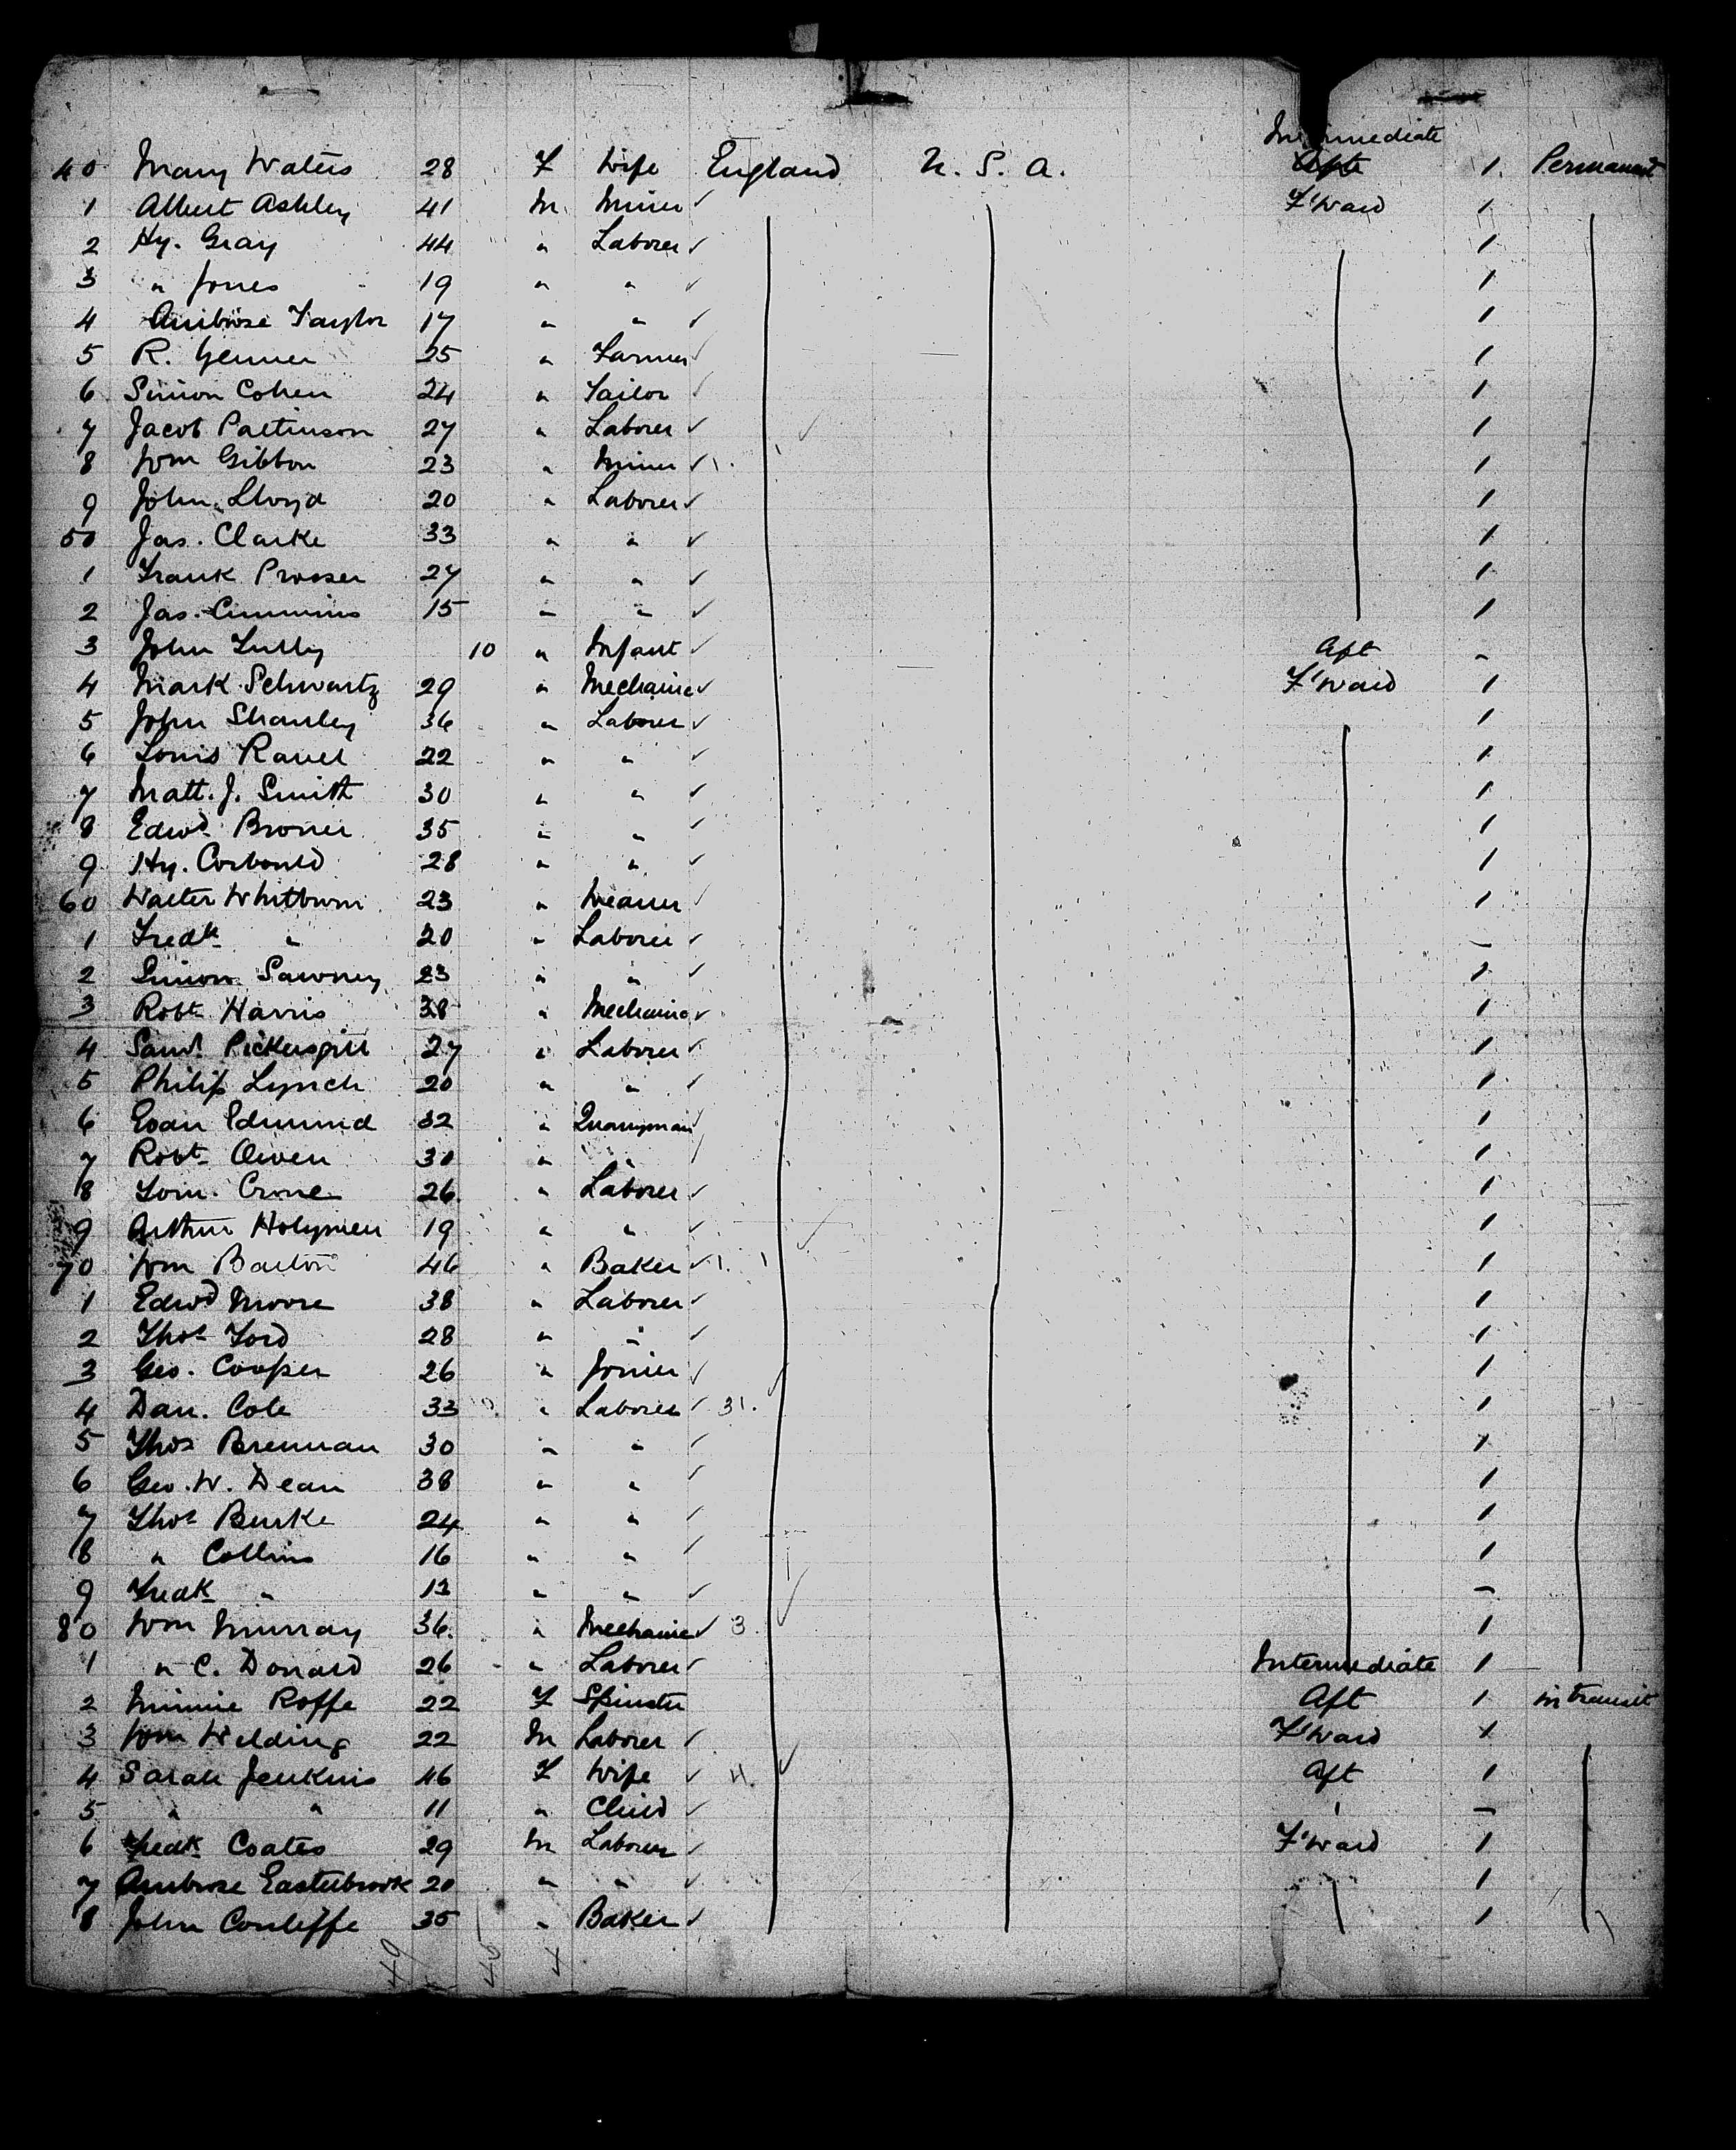 Intermediate
40 Mary Waters 28 F Wife England U. S. A. Aft 1. Permanent
1 Albert Ashley 41 M. Miner ✓ F'Ward 1
2 Hy. Gray 44 " Laborer ✓ 1
3 " Jones 19 " " ✓ 1
4 Ambrose Taylor 17 " " ✓ 1
5 R. Jenner 25 " Farmer ✓ 1
6 Simon Cohen 24 " Tailor ✓ 1
7 Jacob Pattinson 27 " Laborer ✓ 1
8 Wm Gibbon 23 " Miner ✓ 1
9 John Lloyd 20 " Laborer ✓ 1
50 Jas. Clarke 33 " " ✓ 1
1 Frank Prosser 27 " " ✓ 1
2 Jas. Cummins 15 " " ✓ 1
3 John Tully 10 " Infant ✓ Aft -
4 Mark Schwartz 29 " Mechanic ✓ F'Ward 1
5 John Stanley 36 " Laborer ✓ 1
6 Louis Ravel 22 " " ✓ 1
7 Matt. J. Smith 30 " " ✓ 1
8 Edwd 35 " " ✓ 1
9 Hy. Corbould 28 " " ✓ 1
60 Walter Whitburn 23 " Weaver ✓ 1
1 Fredk " 20 " Laborer ✓ -
2 Simon Sawney 23 " " ✓ 1
3 Robt Harris 38 " Mechanic ✓ 1
4 Saml Pickersgill 27 " Laborer ✓ 1
5 Philip Lynch 20 " " ✓ 1
6 Evan Edmund 32 " Quarryman ✓ 1
7 Robt Owen 30 " " ✓ 1
8 Tom. Crone 26. " Laborer ✓ 1
9 Arthur Holymen 19 " " ✓ 1
70 Wm Barton 46 " Baker ✓ 1. 1
1 Edwd Moore 38 " Laborer ✓ 1
2 Thos Ford 28 " " ✓ 1
3 Geo. Cooper 26 " Joiner ✓ 1
4 Dan. Cole 33 " Laborer ✓ 31. 1
5 Thos Brennan 30 " " ✓ 1
6 Geo. W. Dean 38 " " ✓ 1
7 Thos Burke 24 " " ✓ 1
8 " Collins 16 " " ✓ 1
9 Fredk " " " ✓ -
80 Wm Murray 36. " Mechanic ✓ 3. 1
1 " C. Donald 26 " Laborer ✓ Intermediate 1
2 Minnie Roffe 22 F Spinster Aft 1 in transit
3 Wm Welding 22 M Laborer ✓ F'Ward 1
4 Sarah Jenkins 46 F Wife ✓ 4. Aft 1
5 " " 11 " Child ✓ " -
6 Fredk Coates 29 M Laborer ✓ F'Ward 1
7 Ambrose Easterbrook 20 " " ✓ 1
8 John Conliffe 35 " Baker ✓ 1
49 45 4